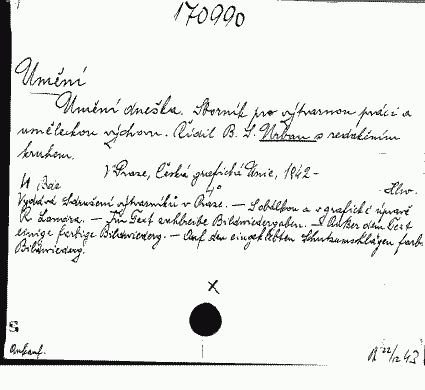 170990
Umění
Umění dneška. Sborník pro výtvarnou práci a
uměleckou výchovu. Řídil B. S. Urban s redakčním
kruhem.
V Praze, Česká grafická Unie, 1942-
4° Hlw.
Vydává Sdružení výtvarníků v Praze. — S obálkou a v grafické úpravě
R. Lander. — Im Text zahlreiche Bildwiedergaben. — Außer dem Text
einige farbige Bildwiederg. — Auf den eingeklebten Schutzumschlägen farb.
Bildwiederg.
Ankauf.
22/12 43